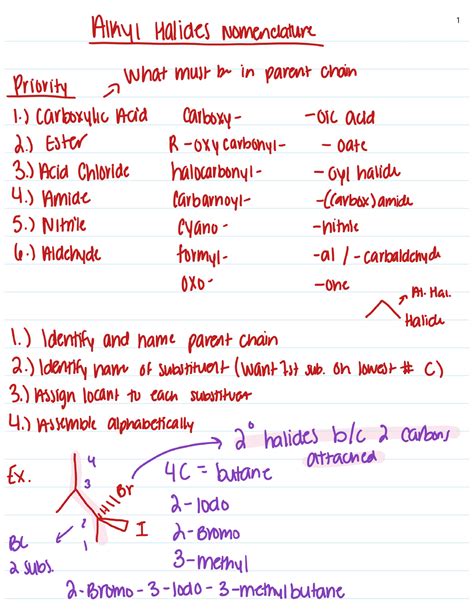 1
Alkyl Halides Nomenclature
Priority
What must be in parent chain
1.) Carboxylic Acid Carboxy- -oic acid
2.) Ester R-oxycarbonyl- -oate
3.) Acid Chloride halocarbonyl- -oyl halide
4.) Amide Carbamoyl- -(carbox)amide
5.) Nitrile cyano- -nitrile
6.) Aldehyde formyl- -al / -carbaldehyde
oxo- -one
Al. Hal.
Halide
1.) Identify and name parent chain
2.) Identify name of substituent (Want 1st sub. on lowest # C)
3.) Assign locant to each substituent
4.) Assemble alphabetically
2° halides b/c 2 carbons
attached
Ex.
4
3
Br
2
I
1
BC
2 subs.
4C = butane
2-Iodo
2-Bromo
3-methyl
2-Bromo-3-Iodo-3-methylbutane